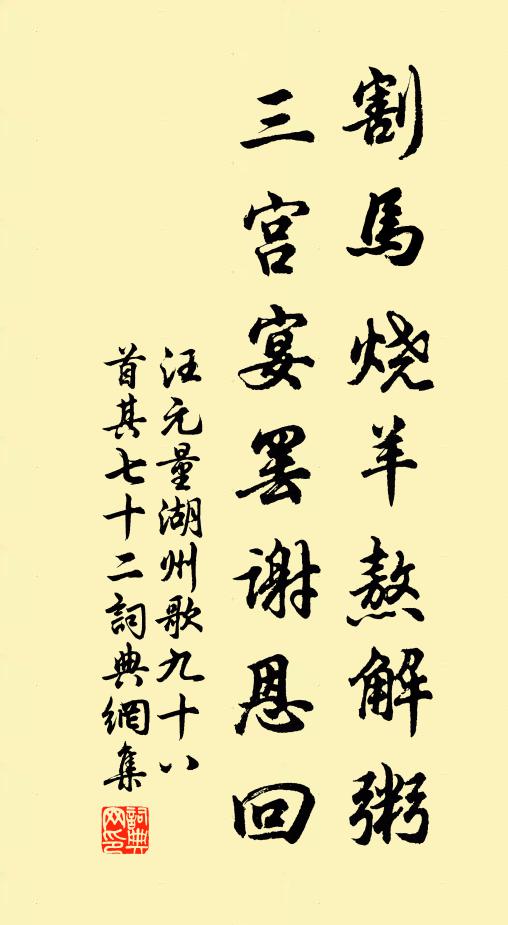 割馬烧羊熬解粥
三宫宴罢谢恩回
汪元量湖州歌九十八
首其七十二詞典網集
詞典
网印